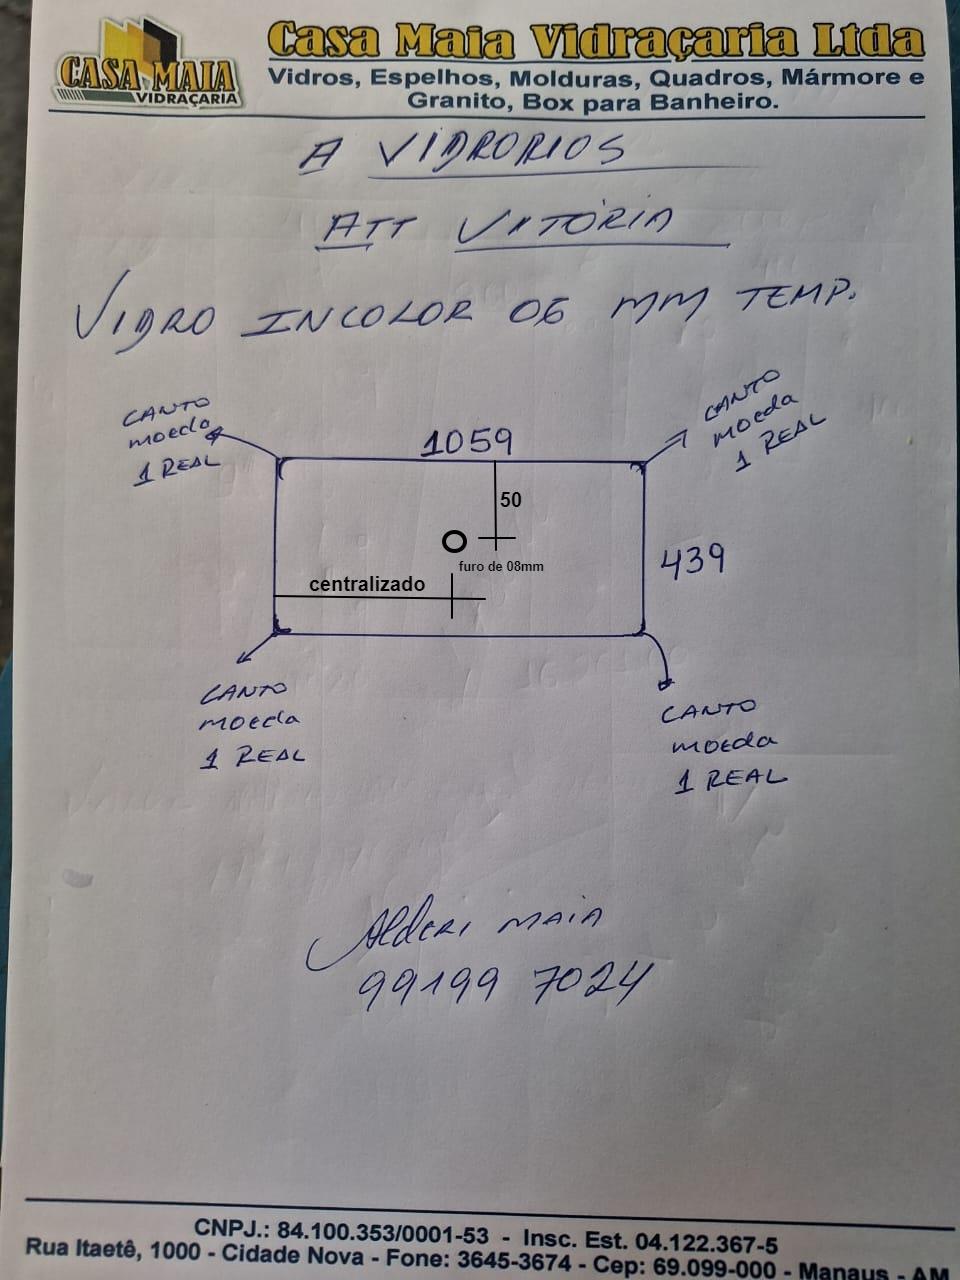 CASA MAIA
VIDRAÇARIA
Casa Maia Vidraçaria Ltda
Vidros, Espelhos, Molduras, Quadros, Mármore e
Granito, Box para Banheiro.
A VIDRORIOS
ATT VITÓRIA
VIDRO INCOLOR 06 MM TEMP.
CANTO
moeda
1 REAL
CANTO
moeda
1 REAL
1059
50
furo de 08mm
439
centralizado
CANTO
moeda
1 REAL
CANTO
moeda
1 REAL
Alderi MAIA
99199 7024
CNPJ.: 84.100.353/0001-53 - Insc. Est. 04.122.367-5
Rua Itaetê, 1000 - Cidade Nova - Fone: 3645-3674 - Cep: 69.099-000 - Manaus - AM